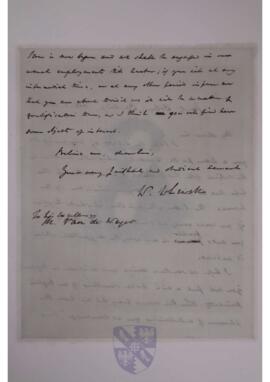 Term is now begun and we shall be engaged in our
usual employments till Easter; if you either at any
intermediate time, or at any other period inform me
that you can come down to us it will be a matter of
gratification to me, and I think you will find here
some objects of interest.
Believe me, dear Sir,
Your very faithful and obedient Servant
W. Whewell
To his Excellency
M. Van de Weyer